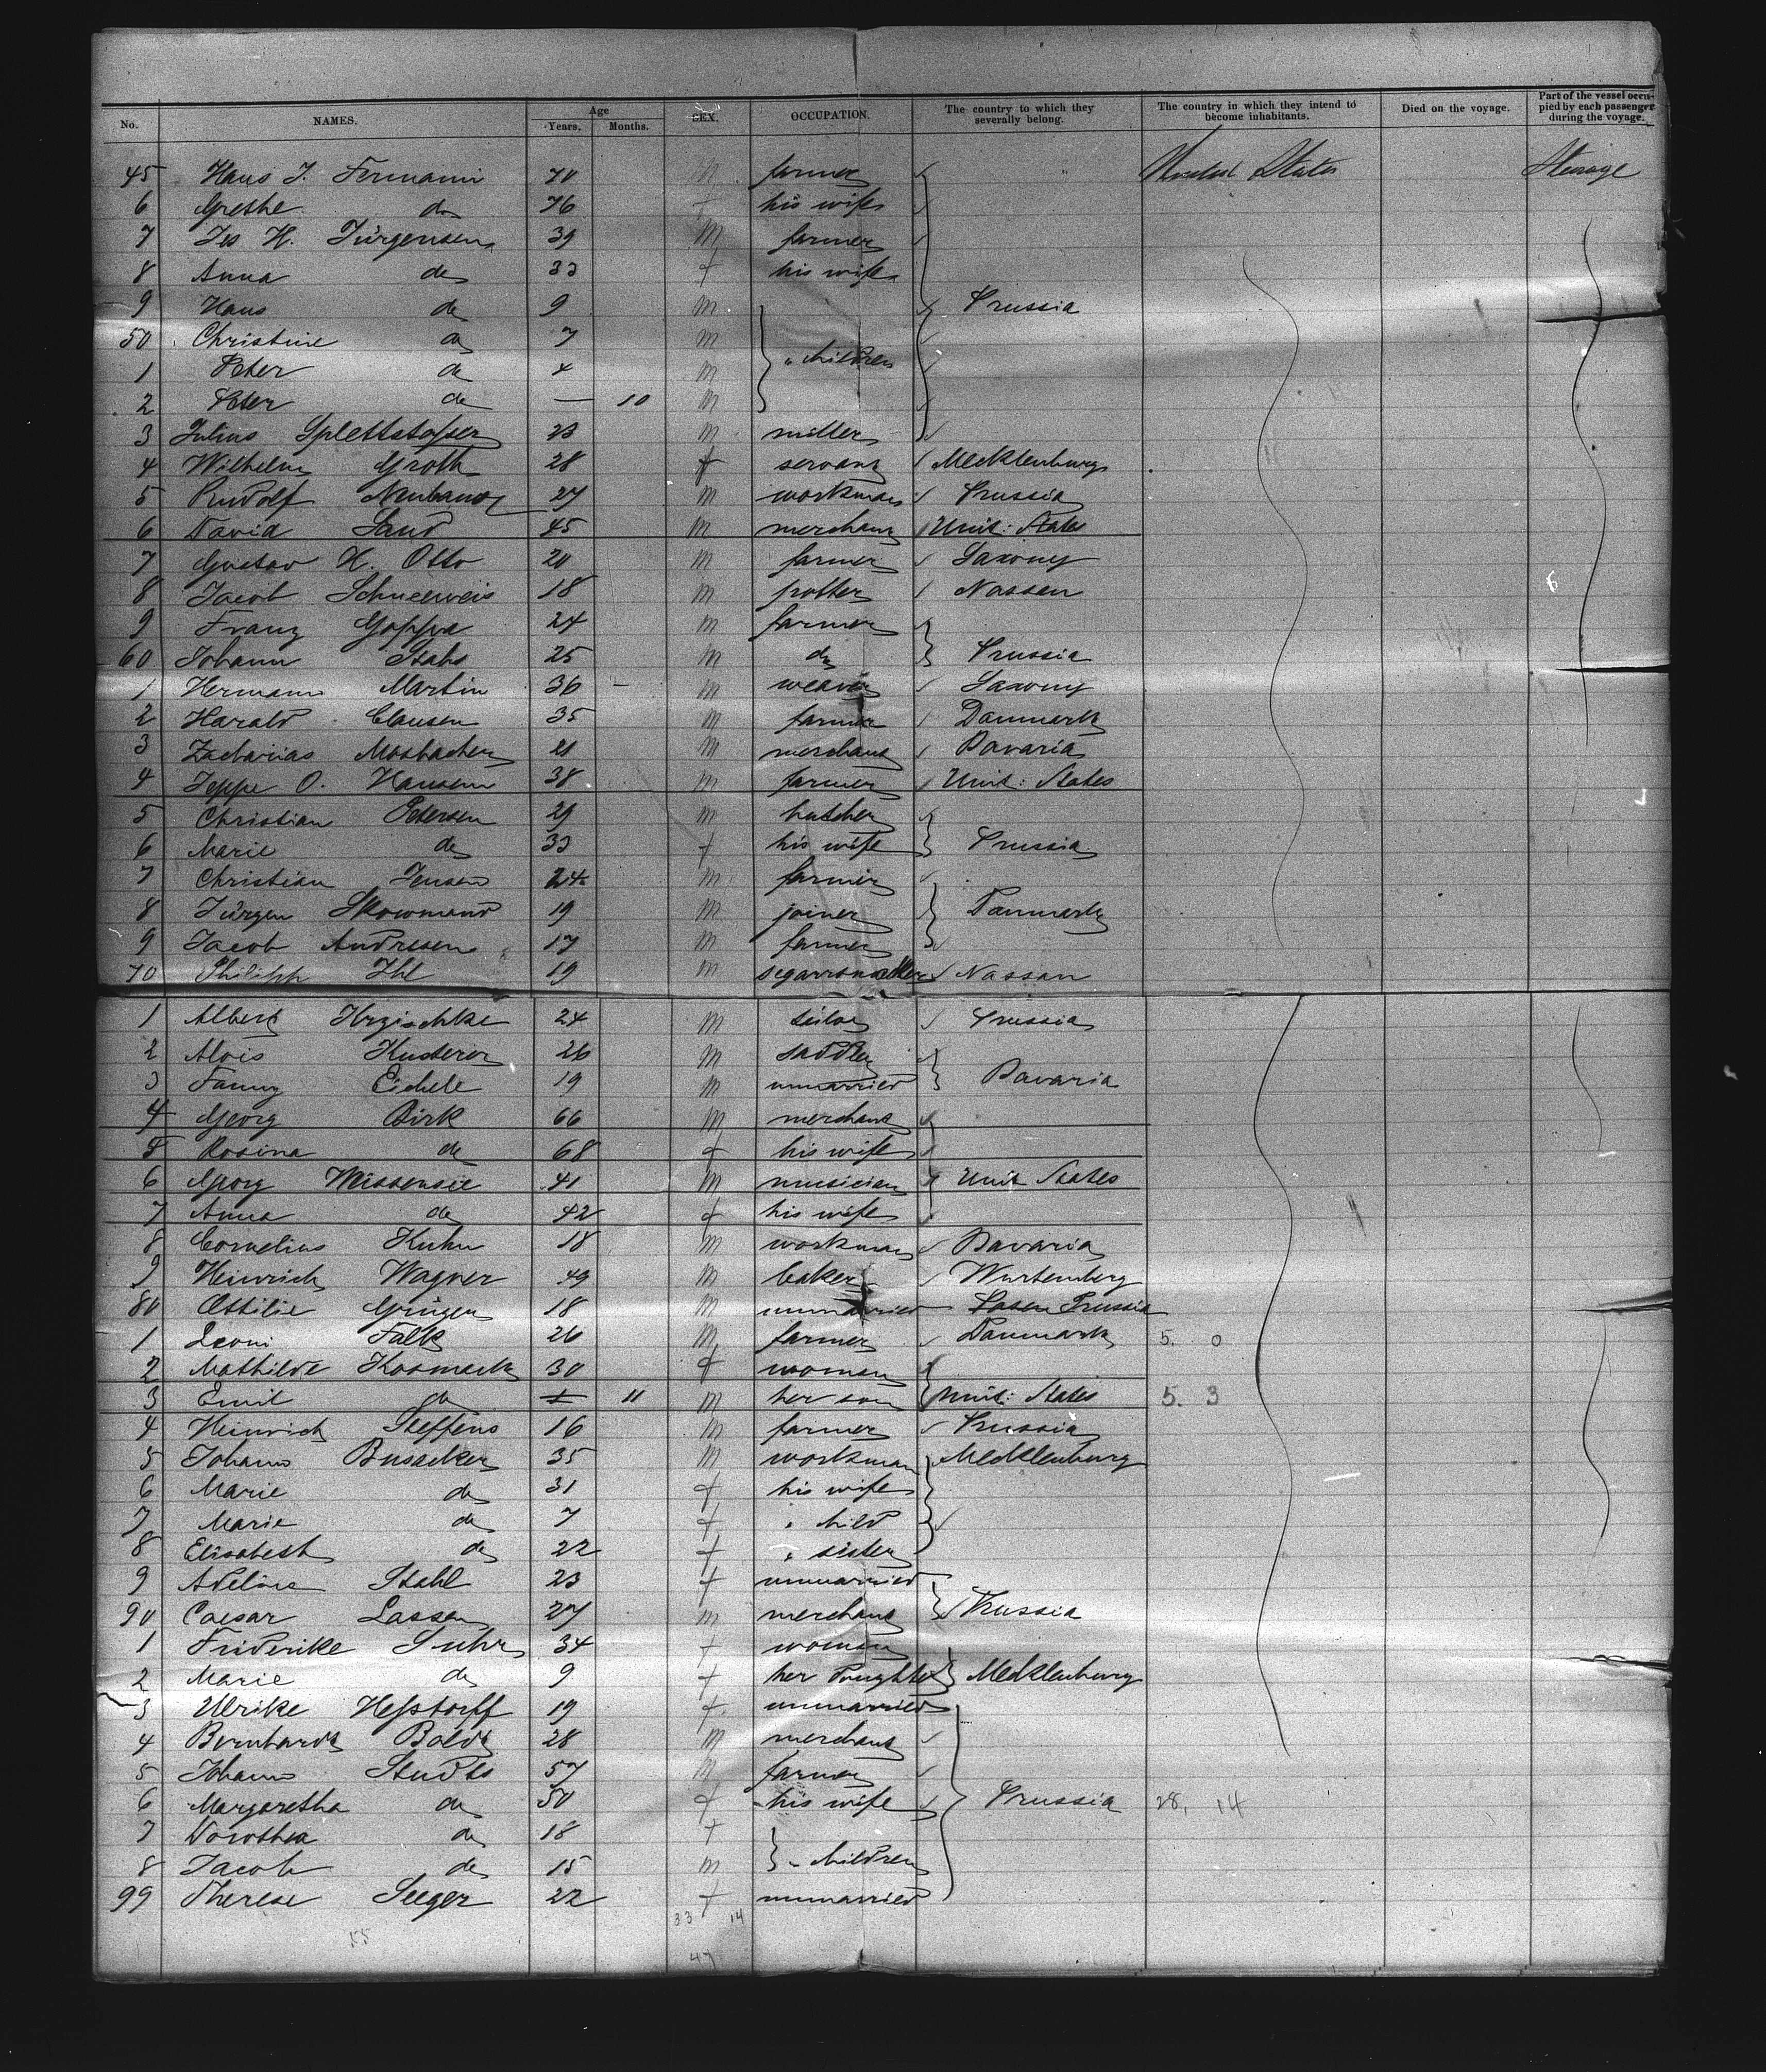 No. NAMES. Age Years. Months. SEX. OCCUPATION. The country to which they severally belong. The country in which they intend to become inhabitants. Died on the voyage. Part of the vessel occupied by each passenger during the voyage.
45 Hans J. Fermann 70 M farmer United States Steerage
6 Grethe do 76 f his wife
7 Jes H. Jürgensen 39 M farmer
8 Anna do 33 f his wife
9 Hans do 9 m Prussia
50 Christine do 7 m
1 Peter do 4 m " children
2 Peter do — 10 m
3 Julius Splettstosser 23 m miller
4 Wilhelm Groth 28 f servant Mecklenburg
5 Rudolf Neubauer 27 m workman Prussia
6 David Sand 45 m merchant Unit: States
7 Gustav H. Otto 20 m farmer Saxony
8 Jacob Schneeweis 18 m potter Nassau
9 Franz 24 m farmer
60 Johann Stahs 25 m do Prussia
1 Hermann Martin 36 — m weaver Saxony
2 Harald Clausen 35 m farmer Danmark
3 Zacharias Mosbacher 21 m merchant Bavaria
4 Jeppe O. Hansen 38 m farmer Unit: States
5 Christian Petersen 29 m butcher
6 Marie do 33 f his wife Prussia
7 Christian Jensen 24 m farmer
8 Jürgen Skowmand 19 m joiner Danmark
9 Jacob Andresen 17 m farmer
70 Philipp Ihl 19 m segarrsmaker Nassau
1 Albert Krzischke 24 m Prussia
2 Alois Kusterer 26 m saddler
3 Fanny Eichele 19 m unmarried Bavaria
4 Georg Birk 66 m merchant
5 Rosina do 68 f his wife
6 Georg Weissensee 41 m musician Unit States
7 Anna do 42 f his wife
8 Cornelius Kuhn 18 m workman Bavaria
9 Heinrich Wagner 49 m baker Wurtemberg
80 Ottilie Grüger 18 m unmarried Prussia
1 Leoni Falk 26 m farmer Danmark 5. 0
2 Mathilde Kosmack 30 f woman
3 Emil do 11 m her son Unit: States 5. 3
4 Heinrich Steffens 16 m farmer Prussia
5 Johann Busacker 35 m workman Mecklenburg
6 Marie do 31 f his wife
7 Marie do 7 f " child
8 Elisabeth do 22 f " sister
9 Adeline Stahl 23 f unmarried
90 Caesar Lassen 27 m merchant Prussia
1 Friderike Suhr 34 f woman
2 Marie do 9 f her Doughter Mecklenburg
3 Ulrike Heßtorff 19 f unmarried
4 Bernhardt Boldt 28 m merchant
5 Johann Studts 57 m farmer
6 Margaretha do 50 f his wife Prussia 28, 14
7 Dorothea do 18 f
8 Jacob do 15 m " children
99 Therese Seeger 22 f unmarried
33 14
55
47